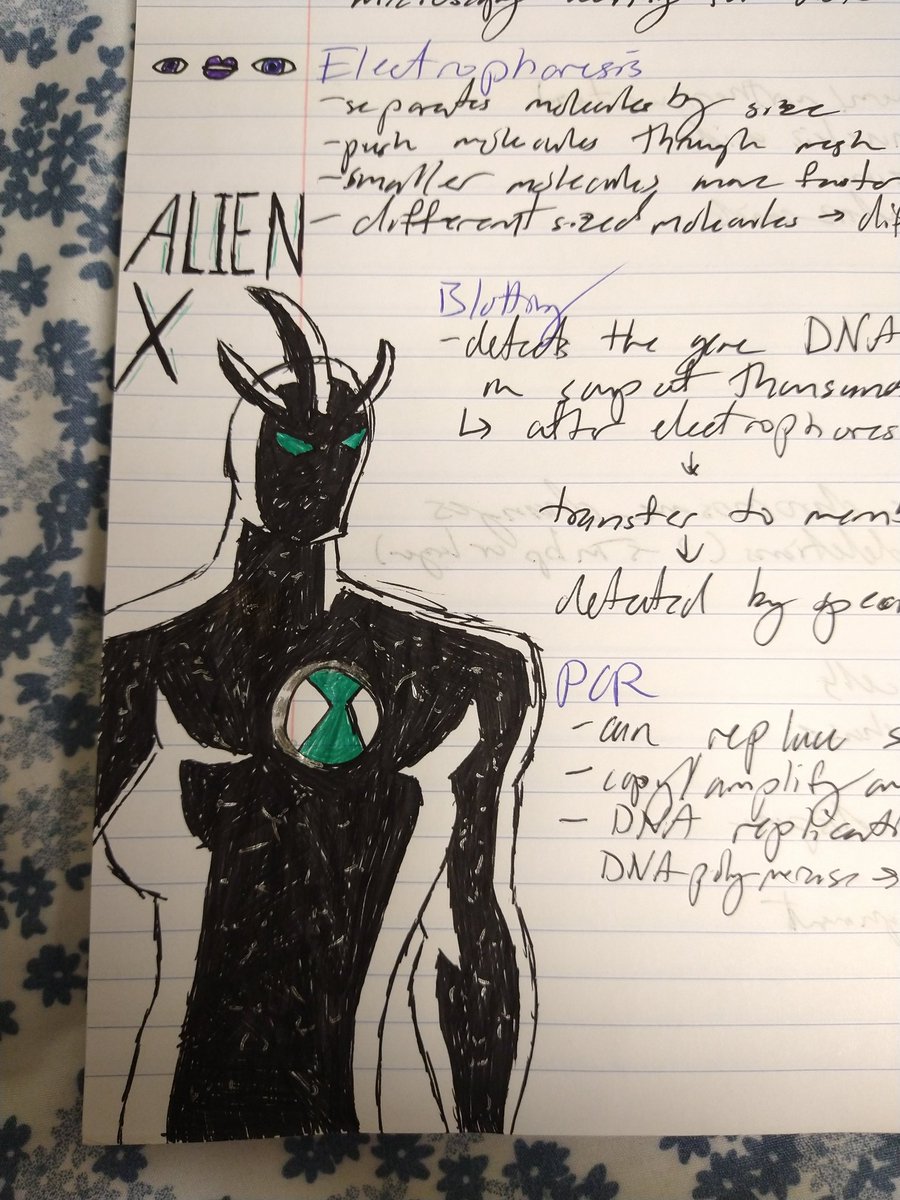 Electrophoresis
- separates molecules by size
- push molecules through mesh
- smaller molecules move faster
- different sized molecules →
ALIEN
X
Blotting
- detects the gene DNA
↳ after electrophores
↓
transfer to mem
↓
detected by
PCR
- can replace
- copy/amplify
- DNA replicati
DNA polymerase →